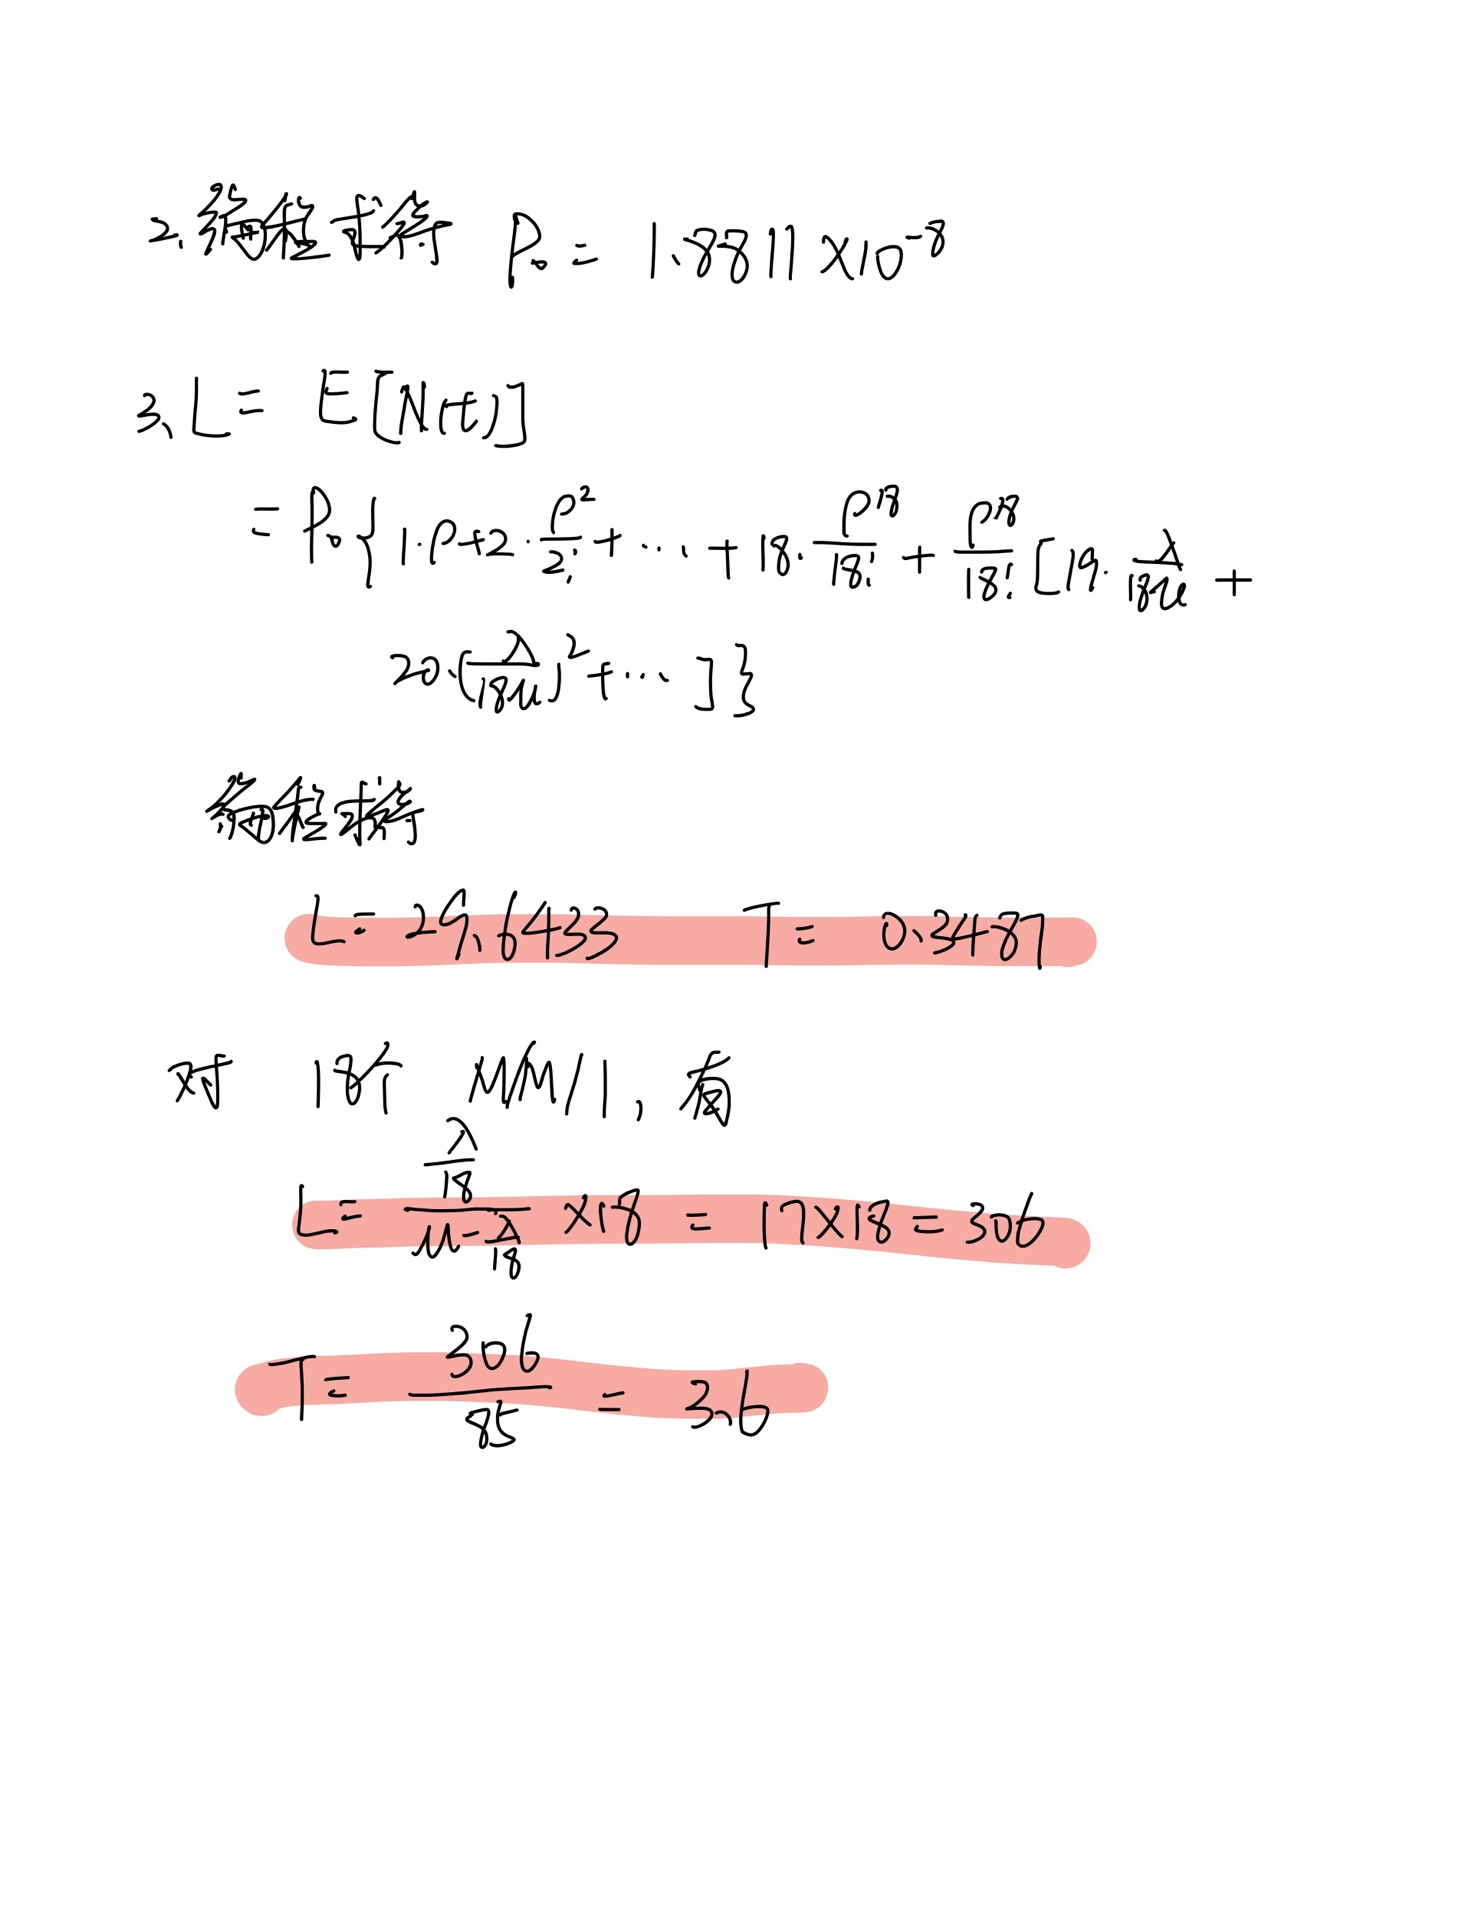 2、编程求得 P₀ = 1.8811 ×10⁻⁸
3、L = E[N(t)]
= P₀{1·ρ+2·ρ²/2! + ··· + 18·ρ¹⁸/18! + ρ¹⁸/18! [19·λ/18μ +
20·(λ/18μ)² + ··· ]}
编程求得
L = 29.6433 T = 0.3487
对 18个 M/M/1, 有
L = (λ/18)/(μ-λ/18) ×18 = 17×18 = 306
T = 306/85 = 3.6